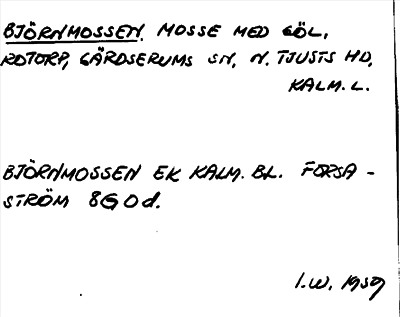 BJÖRNMOSSEN. MOSSE MED GÖL,
ROTORP, GÄRDSERUMS SN, N. TJUSTS HD,
KALM. L.
BJÖRNMOSSEN EK KALM. BL. FORSA-
STRÖM 8G0d.
I.W. 1959